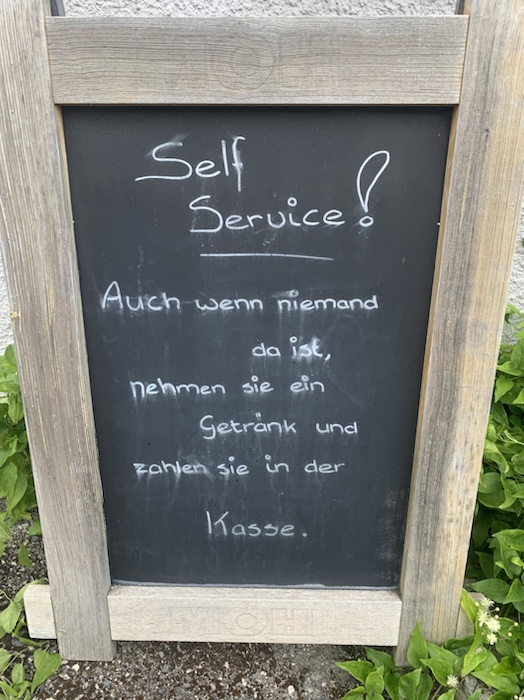 Self
Service!
Auch wenn niemand
da ist,
nehmen sie ein
Getränk und
zahlen sie in der
Kasse.